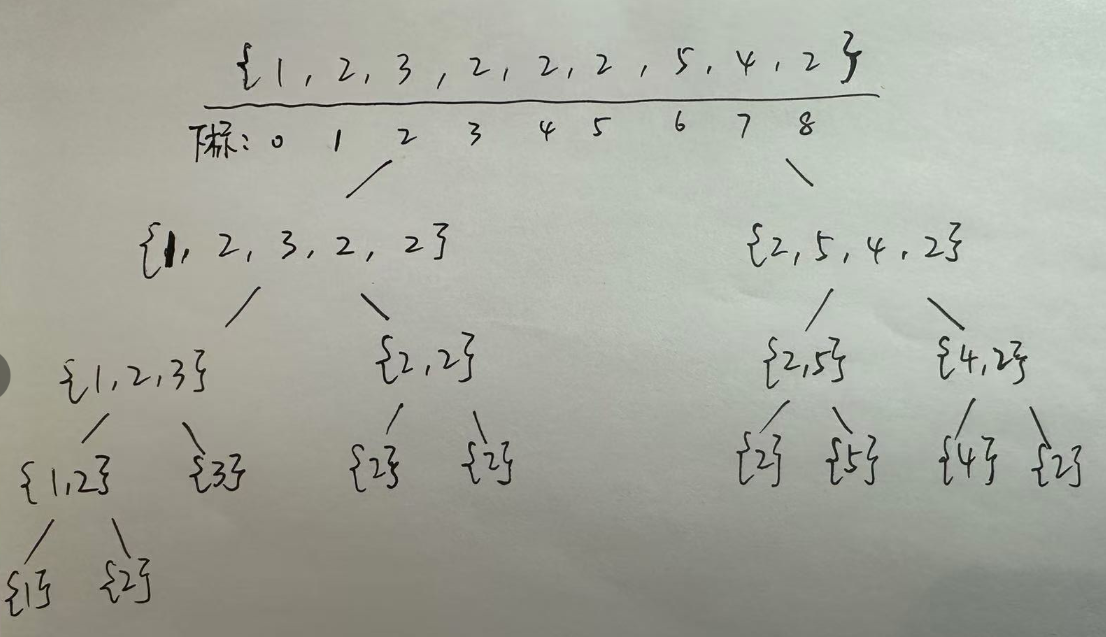 {1, 2, 3, 2, 2, 2, 5, 4, 2}
下标: 0 1 2 3 4 5 6 7 8
{1, 2, 3, 2, 2} {2, 5, 4, 2}
{1, 2, 3} {2, 2} {2, 5} {4, 2}
{1, 2} {3} {2} {2} {2} {5} {4} {2}
{1} {2}